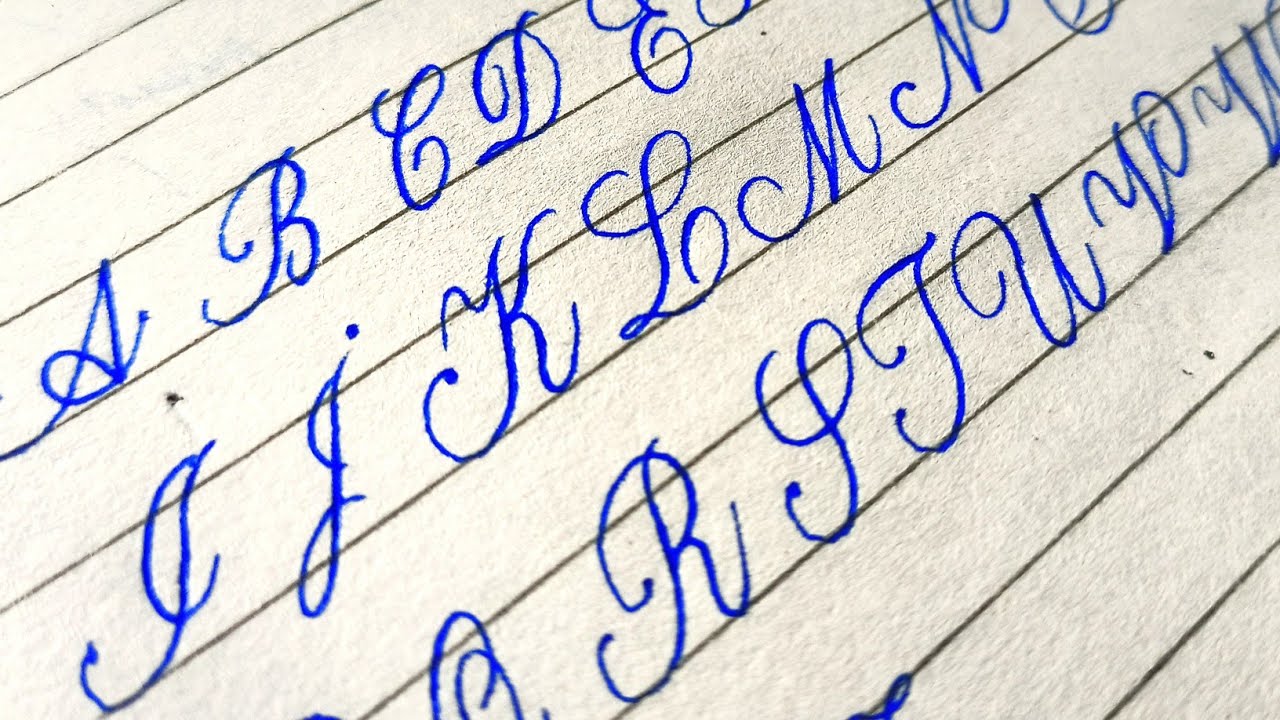 A B C D E
I J K L M N O
Q R S T U V W